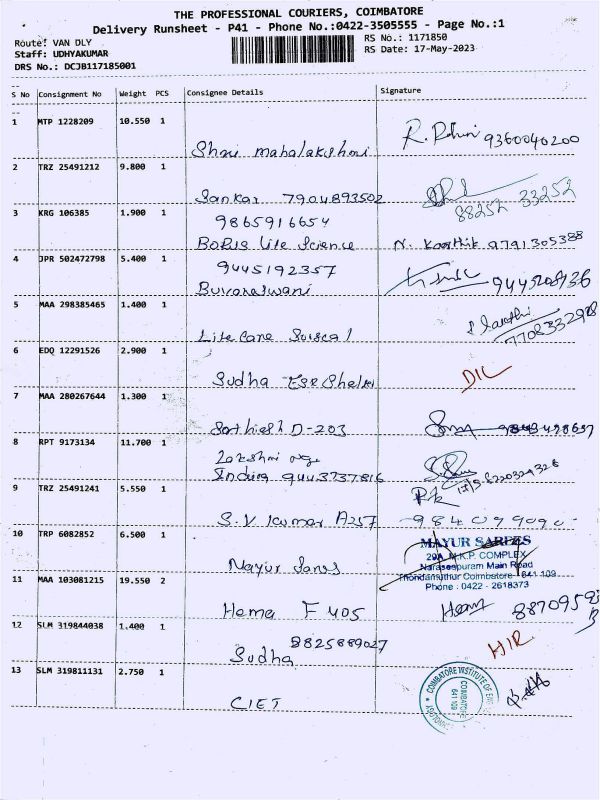 THE PROFESSIONAL COURIERS, COIMBATORE
Delivery Runsheet - P41 - Phone No.:0422-3505555 - Page No.:1
Route: VAN DLY
RS No.: 1171850
Staff: UDHYAKUMAR
RS Date: 17-May-2023
DRS No.: DCJB117185001
S No Consignment No Weight PCS Consignee Details Signature
1 MTP 1228209 10.550 1
Shri mahalakshmi 9360040200
2 TRZ 25491212 9.800 1
Sankar 7904893502 88252 33252
3 KRG 106385 1.900 1
9865916654
Life Science N. Karthik 9791305388
4 JPR 502472798 5.400 1
9445192357
Buvaneswari
5 MAA 298385465 1.400 1
Life Care 7708332978
6 EDQ 12291526 2.900 1
Sudha D/L
7 MAA 280267644 1.300 1
Sathish D-203
8 RPT 9173134 11.700 1
Lakshmi
Indira 9443737816
9 TRZ 25491241 5.550 1
S.V Kumar A257
10 TRP 6082852 6.500 1
MAYUR SAREES
29A, M.K.P. COMPLEX
Naraseepuram Main Road
Thondamuthur Coimbatore - 641 109
Phone : 0422 - 2618373
Mayur
11 MAA 103081215 19.550 2
Hema F 405 Hema
12 SLM 319844038 1.400 1
8825889027
Sudha H/R
13 SLM 319811131 2.750 1
CIET
COIMBATORE INSTITUTE OF
COIMBATORE
641 109